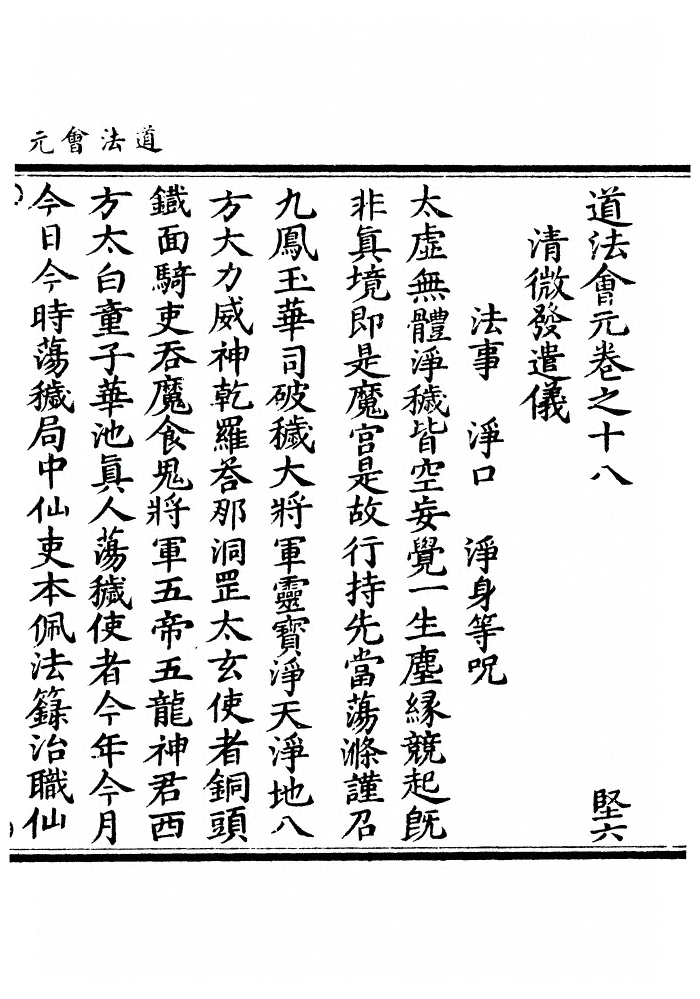 道法會元
道法會元卷之十八　堅六
清微發遣儀
法事　淨口　淨身等呪
太虛無體淨穢皆空妄覺一生塵緣競起旣
非眞境即是魔宮是故行持先當蕩滌謹召
九鳳玉華司破穢大將軍靈寶淨天淨地八
方大力威神乾羅荅那洞罡太玄使者銅頭
鐵面騎吏吞魔食鬼將軍五帝五龍神君西
方太白童子華池眞人蕩穢使者今年今月
今日今時蕩穢局中仙吏本佩法籙治職仙